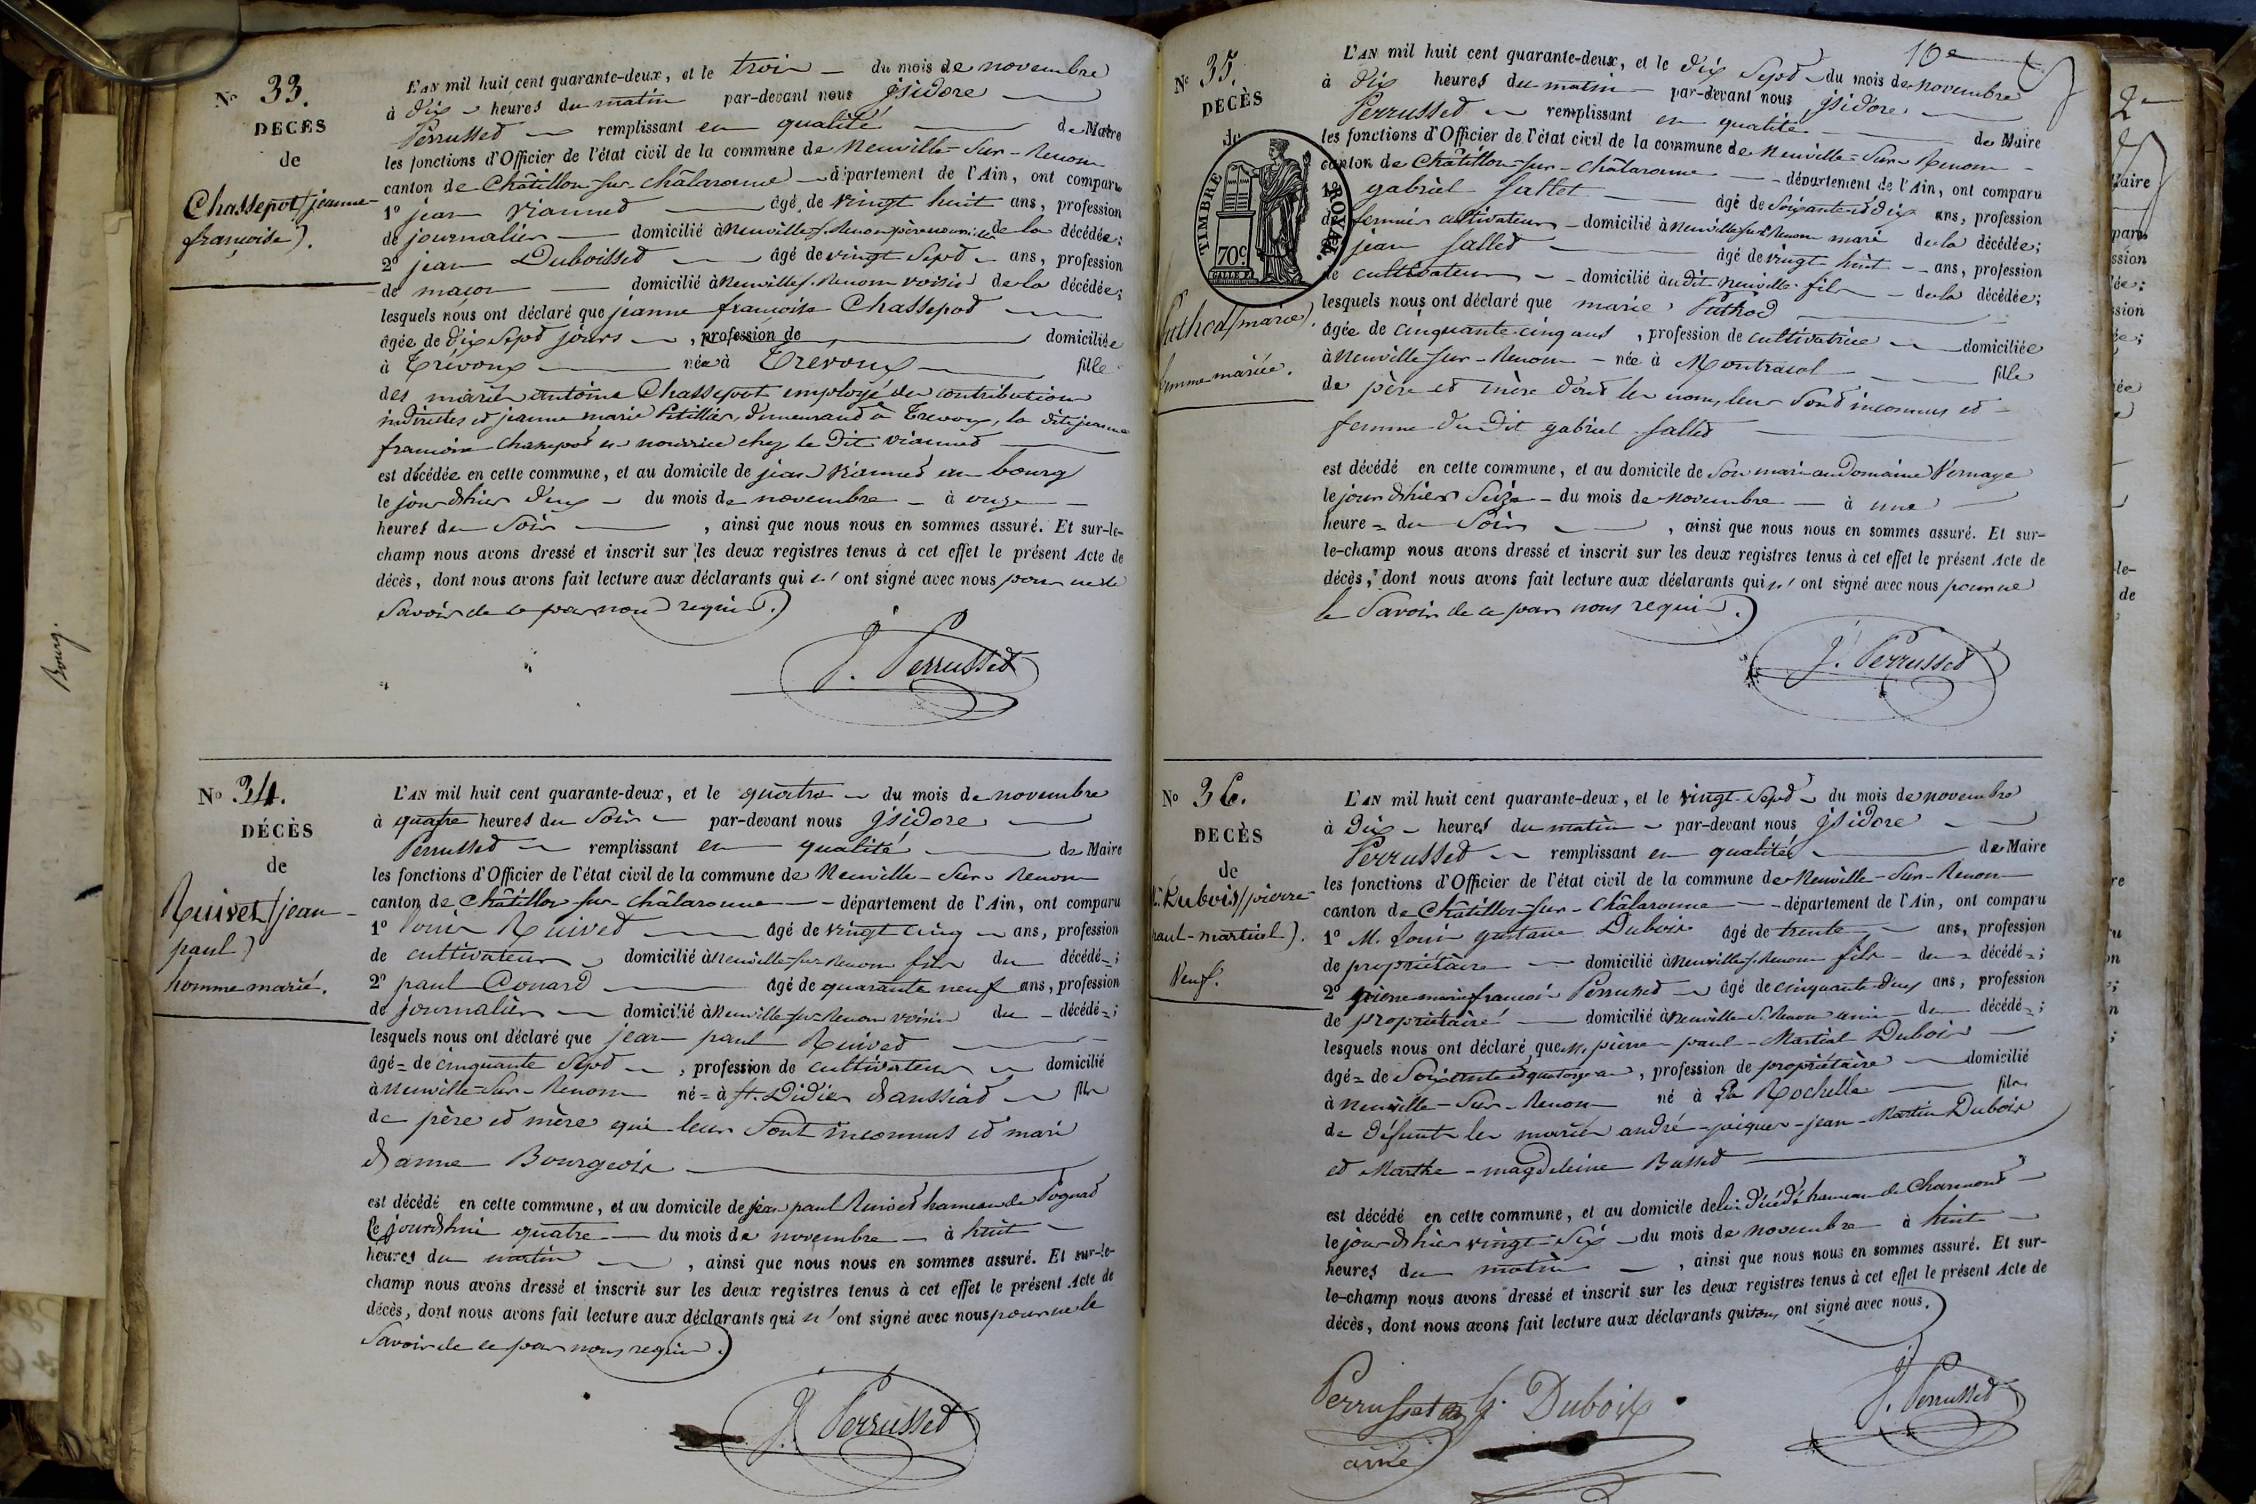 Bourg.
N° 33.
DECÈS
de
Chassepot (jeanne-
françoise).
L'AN mil huit cent quarante-deux, et le trois du mois de novembre
à dix heures du matin par-devant nous jsidore
Perrusset remplissant en qualité de Maire
les fonctions d'Officier de l'état civil de la commune de Neuville-Sur-Renom
canton de Châtillon-sur-châlaronne département de l'Ain, ont comparu
1° jean Vianned âgé de vingt huit ans, profession
de journalier domicilié à Neuville s. Renom père nourricier de la décédée;
2° jean Duboisset âgé de vingt sept ans, profession
de maçon domicilié à Neuville s. Renom voisin de la décédée;
lesquels nous ont déclaré que jeanne françoise Chassepod
âgée de dix sept jours , profession de domiciliée
à Trévoux née à Trévoux fille
des mariés antoine Chassepot employé des contributions
indirectes et jeanne marie Petillier, demeurand à Trevoux, la dite jeanne
francoise Chassepot en nourrice chez le dit vianned
est décédée en cette commune, et au domicile de jean Vianned au bourg
le jour d'hier deux du mois de novembre à onze
heures du soir , ainsi que nous nous en sommes assuré. Et sur-le-
champ nous avons dressé et inscrit sur les deux registres tenus à cet effet le présent Acte de
décès, dont nous avons fait lecture aux déclarants qui n'ont signé avec nous pour ne le
Savoir de ce par nous requis.
J. Perrusset
N° 34.
DÉCÈS
de
Ruivet (jean
paul)
homme marié.
L'AN mil huit cent quarante-deux, et le quatre du mois de novembre
à quatre heures du Soir par-devant nous jsidore
Perrusset remplissant en qualité de Maire
les fonctions d'Officier de l'état civil de la commune de Neuville-Sur-Renom
canton de Châtillon sur-châlaronne département de l'Ain, ont comparu
1° louis Ruived âgé de vingt cinq ans, profession
de cultivateur domicilié à Neuville-sur-Renom fils du décédé;
2° paul Conard âgé de quarante neuf ans, profession
de journalier domicilié à Neuville-sur-Renom voisin du décédé;
lesquels nous ont déclaré que jean paul Ruived
âgé de cinquante sept , profession de cultivateur domicilié
à Neuville-Sur-Renom né à St. Didier d'aussiad fils
de père et mère qui leur sont inconnus et mari
d'anne Bourgeois
est décédé en cette commune, et au domicile de jean paul Ruived hameau de
le jourd'hui quatre du mois de novembre à huit
heures du matin , ainsi que nous nous en sommes assuré. Et sur-le-
champ nous avons dressé et inscrit sur les deux registres tenus à cet effet le présent Acte de
décès, dont nous avons fait lecture aux déclarants qui n'ont signé avec nous pour ne le
Savoir de ce par nous requis.
J. Perrusset
10e
N° 35.
DECÈS
de
TIMBRE ROYAL
70c
Pathod (marie).
femme mariée.
L'AN mil huit cent quarante-deux, et le dix Sept du mois de novembre
à dix heures du matin par-devant nous jsidore
Perrusset remplissant en qualité de Maire
les fonctions d'Officier de l'état civil de la commune de Neuville-Sur-Renom
canton de Châtillon-sur-châlaronne département de l'Ain, ont comparu
1° gabriel Sallet âgé de Soixante et dix ans, profession
de fermier cultivateur domicilié à Neuville sur Renom mari de la décédée;
jean Salled âgé de vingt huit ans, profession
de cultivateur domicilié au dit Neuville fils de la décédée;
lesquels nous ont déclaré que marie Pathod
âgée de cinquante-cinq ans , profession de cultivatrice domiciliée
à Neuville-sur-Renom née à Montracol fille
de père et mère dont les noms leur sont inconnus et
femme du dit gabriel Salled
est décédé en cette commune, et au domicile de son mari au domaine Vernaye
le jour d'hier Seize du mois de novembre à une
heure du Soir , ainsi que nous nous en sommes assuré. Et sur-
le-champ nous avons dressé et inscrit sur les deux registres tenus à cet effet le présent Acte de
décès, dont nous avons fait lecture aux déclarants qui n'ont signé avec nous pour ne
le Savoir de ce par nous requis.
J. Perrusset
N° 36.
DECÈS
de
Dubois (pierre
paul-martial).
Veuf.
L'AN mil huit cent quarante-deux, et le vingt-Sept du mois de novembre
à dix heures du matin par-devant nous jsidore
Perrusset remplissant en qualité de Maire
les fonctions d'Officier de l'état civil de la commune de Neuville-Sur-Renom
canton de Châtillon-sur-châlaronne département de l'Ain, ont comparu
1° M. Louis gustave Dubois âgé de trente ans, profession
de propriétaire domicilié à Neuville s. Renom fils du décédé;
2° pierre marie françois Perrussed âgé de cinquante deux ans, profession
de propriétaire domicilié à Neuville S. Renom ami du décédé;
lesquels nous ont déclaré que M. pierre-paul-Martial Dubois
âgé de Soixante et quatorze ans , profession de propriétaire domicilié
à Neuville-Sur-Renom né à La Rochelle fils
de défunts les mariés andré-jacques-jean-Martin Dubois
et Marthe-magdeleine Bussed
est décédé en cette commune, et au domicile de lui décédé hameau de Charmont
le jour d'hier vingt-Six du mois de novembre à huit
heures du matin , ainsi que nous nous en sommes assuré. Et sur-
le-champ nous avons dressé et inscrit sur les deux registres tenus à cet effet le présent Acte de
décès, dont nous avons fait lecture aux déclarants qui tous ont signé avec nous.
Perrusset G. Dubois J. Perrusset
ainé